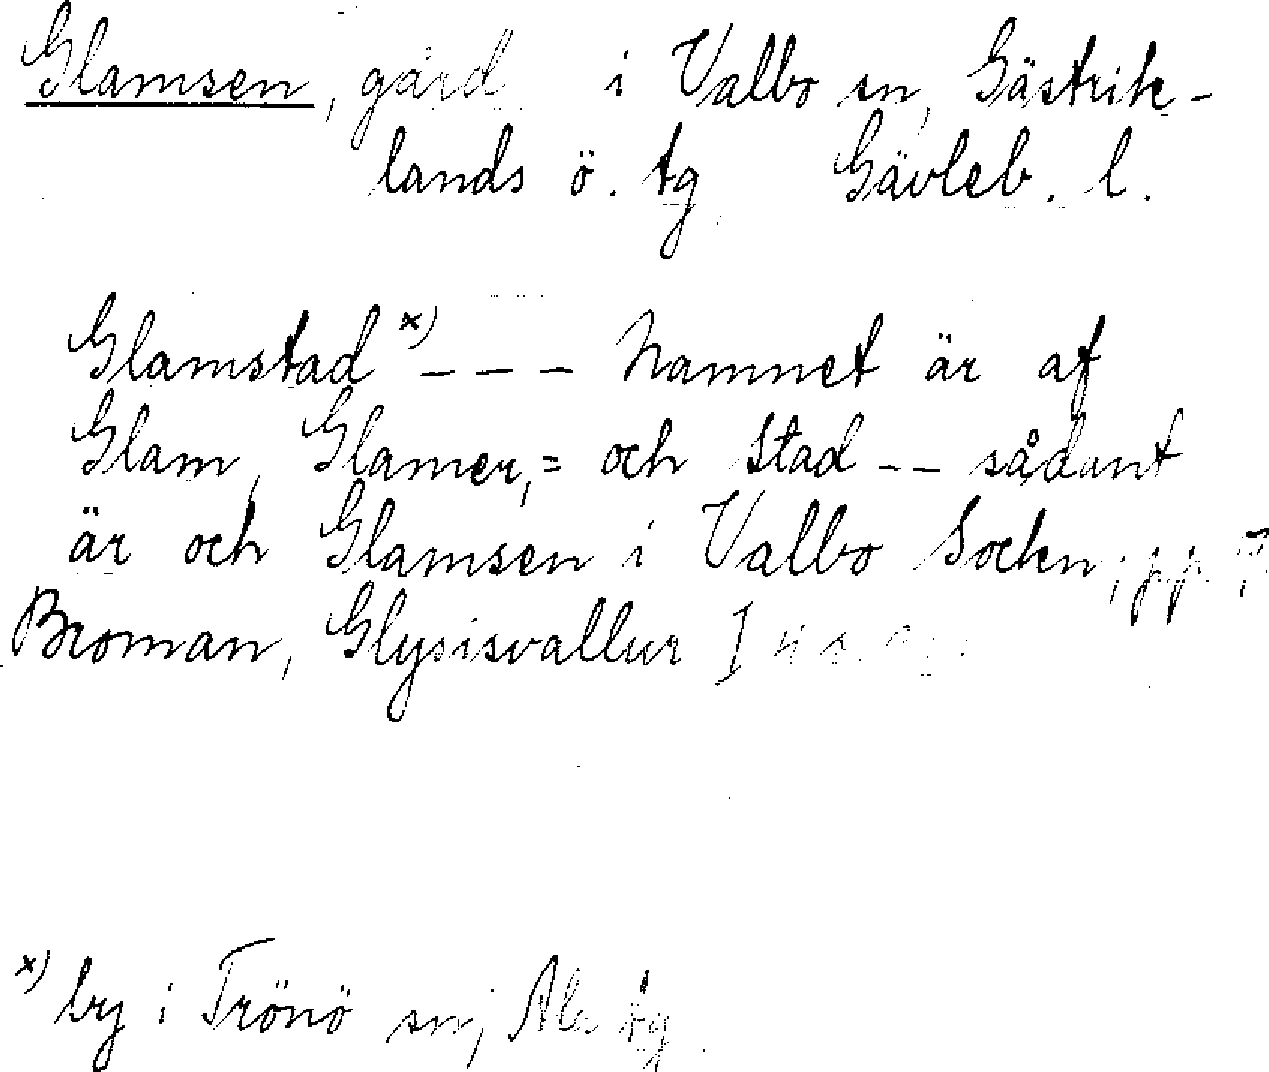 Glamsen, gård i Valbo sn, Gästrik-
lands ö. tg Gävleb. l.
Glamstad x) --- Namnet är af
Glam, Glamer,= och Stad -- sådant
är och Glamsen i Valbo Sockn;
Broman, Glysisvallur I
x) by i Trönö sn, Ala tg.